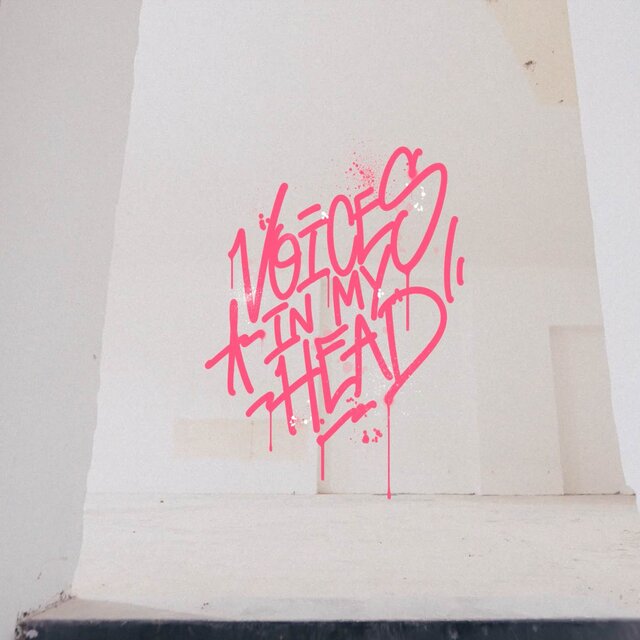 VOICES
IN MY
HEAD